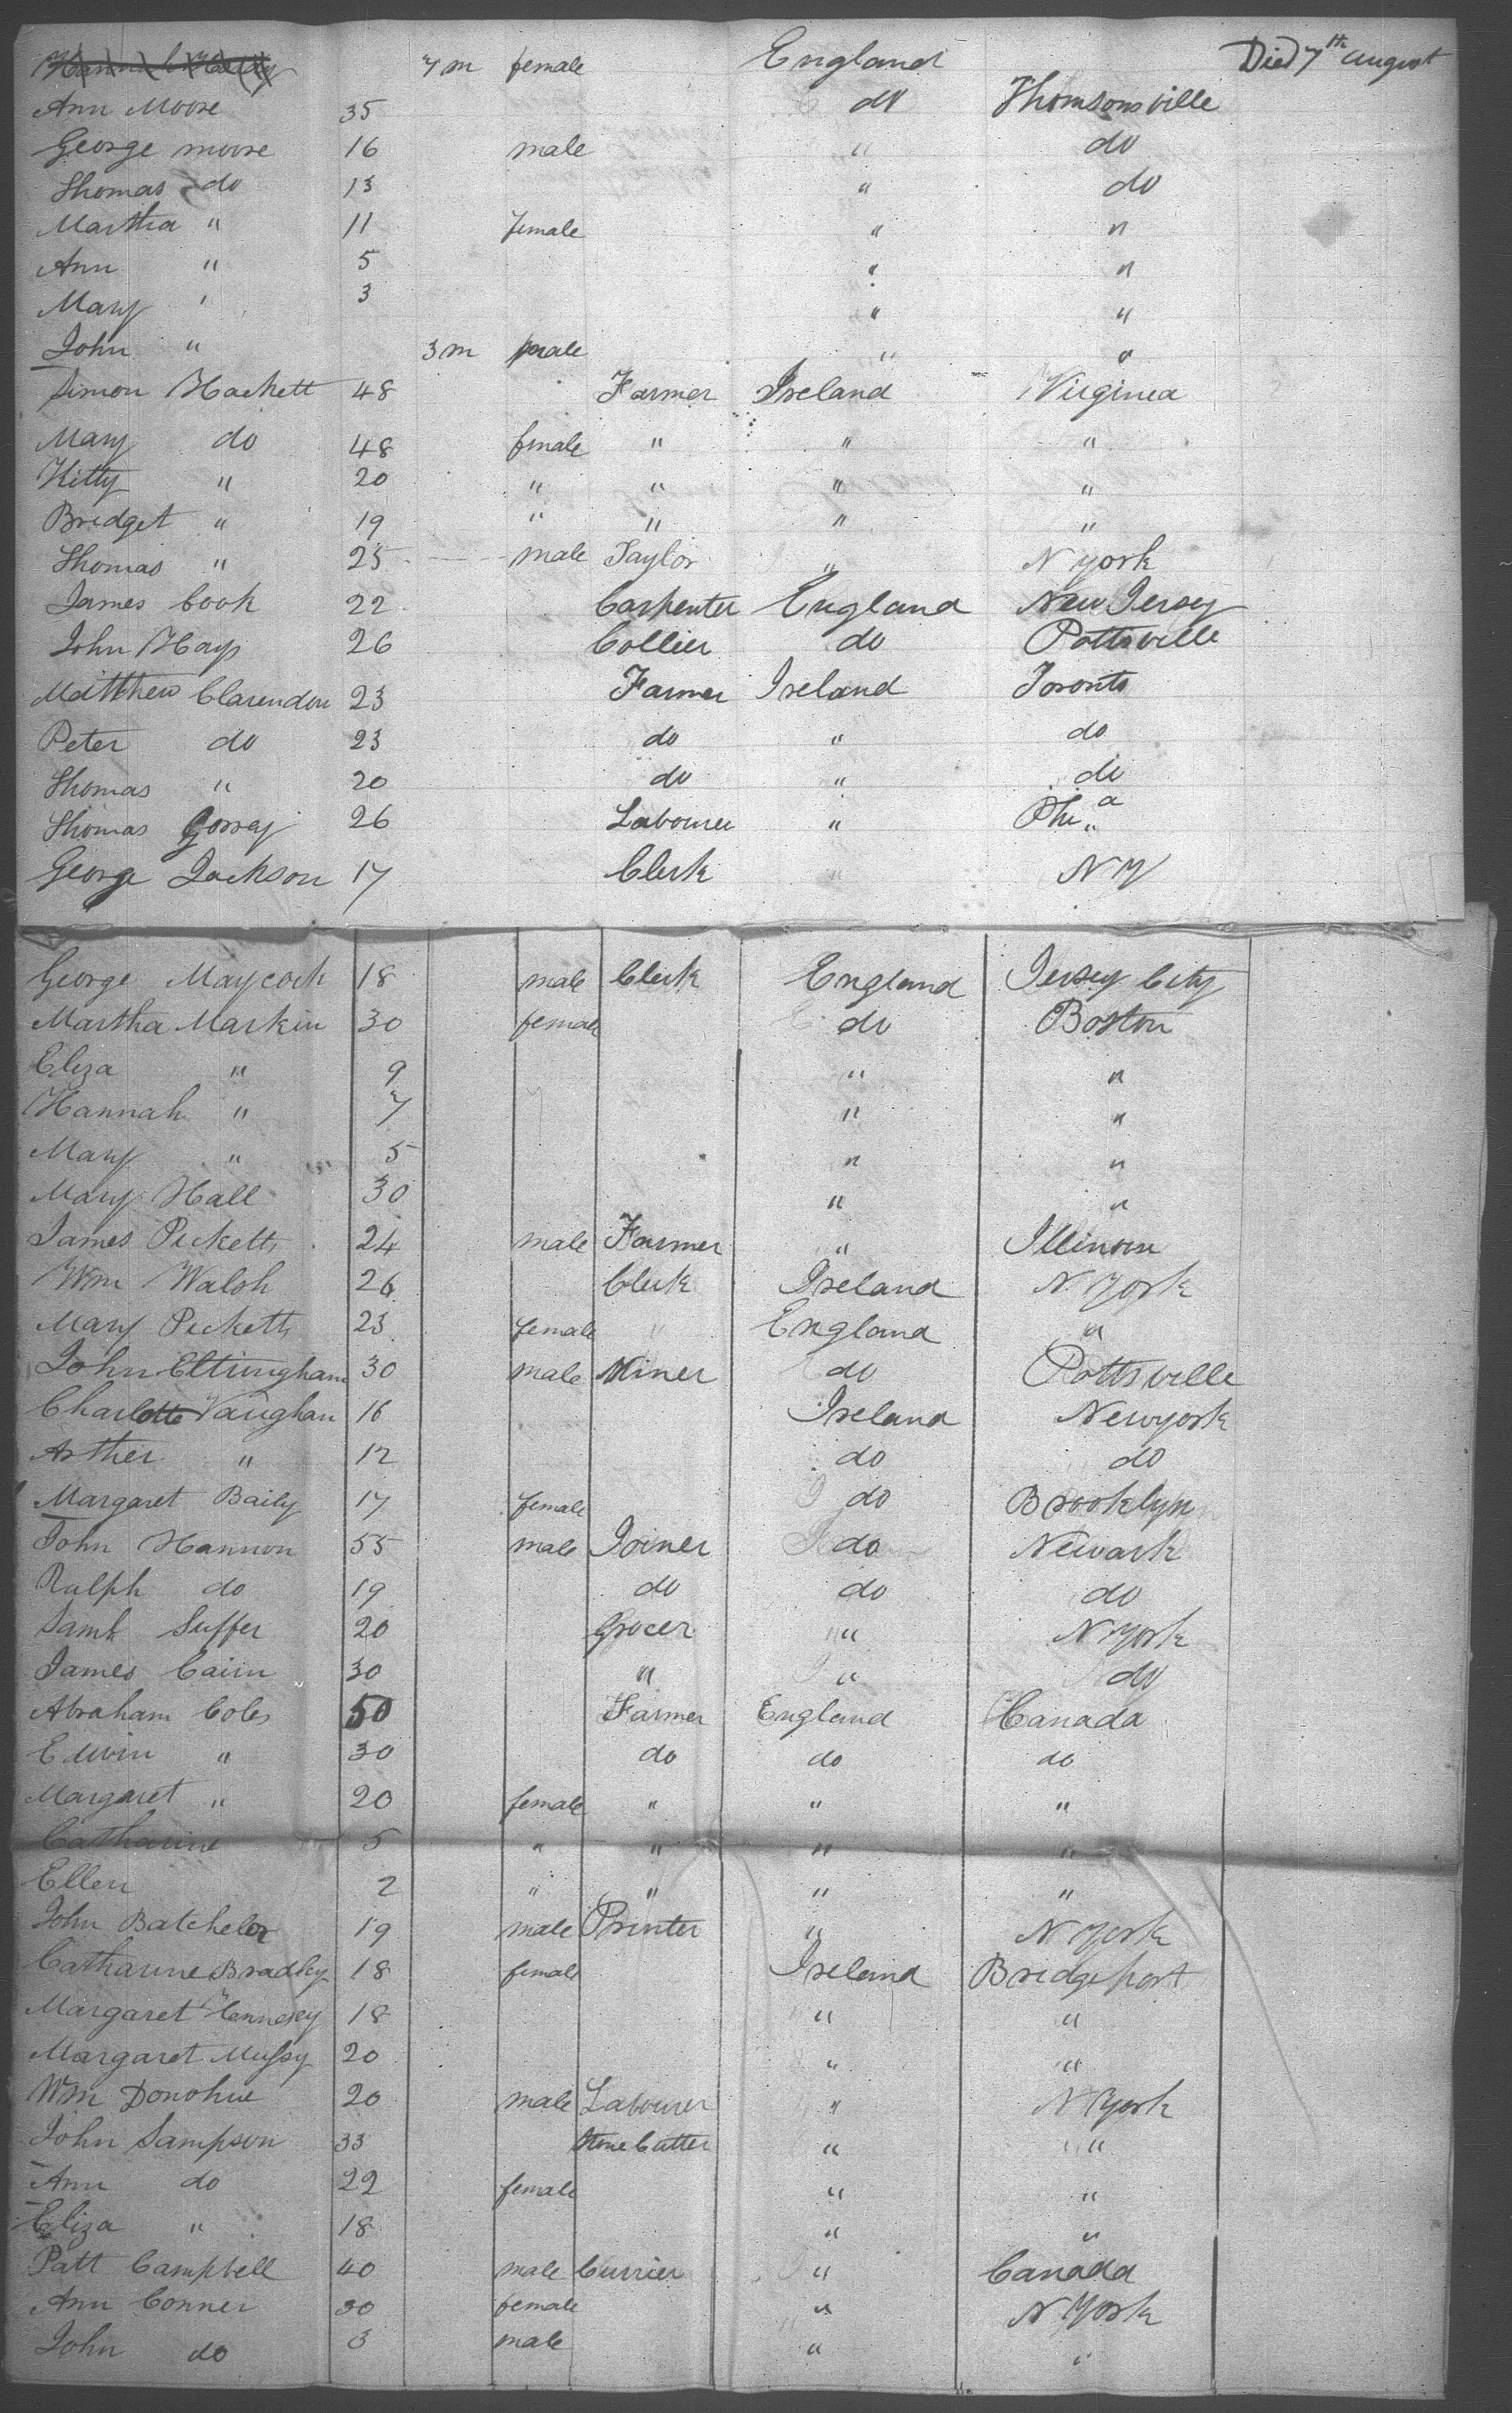 7m female England Died 7th August
Ann Moore 35 do Thomsonsville
George moore 16 male " do
Thomas do 13 " do
Martha " 11 female " "
Ann " 5 " "
Mary " 3 " "
John " 3m male " "
Simon Hackett 48 Farmer Ireland Virginia
Mary do 48 female " " "
Kitty " 20 " " " "
Bridget " 19 " " " "
Thomas " 25 male Taylor " N york
James Cook 22 Carpenter England New Jersey
John Hays 26 Collier do Pottsville
Matthew Clarendon 23 Farmer Ireland Toronto
Peter do 23 do " do
Thomas " 20 do " do
Thomas 26 Labourer " Phia
George Jackson 17 Clerk " NY
George Maycock 18 male Clerk England Jersey City
Martha Markin 30 female do Boston
Eliza " 9 " "
Hannah " 7 " "
Mary " 5 " "
Mary Hall 30 " "
James Picketts 24 male Farmer "
Wm Walsh 26 Clerk Ireland N York
Mary Picketts 23 female " England "
John Eltringham 30 male Miner do Pottsville
Charlotte Vaughan 16 Ireland Newyork
Arther " 12 do do
Margaret Baily 17 female do Brooklyn
John Hannon 55 male Joiner do Newark
Ralph do 19 do do do
Saml Suffer 20 Grocer " N York
James Cairn 30 " " do
Abraham Coles 50 Farmer England Canada
Edwin " 30 do do do
Margaret " 20 female " " "
Catharine 5 " " " "
Ellen 2 " " " "
John Batchelor 19 male Printer " N York
Catharine Bradley 18 female Ireland Bridgeport
Margaret Hennesey 18 " "
Margaret 20 " "
Wm Donohue 20 male Labourer " N York
John Sampson 33 Stone Cutter " "
Ann do 22 female " "
Eliza " 18 " "
Patt Campbell 40 male Currier " Canada
Ann Conner 30 female " N York
John do 3 male " "